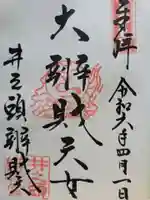 奉拝
令和六年四月一日
大辨財天女
井之頭辨財天